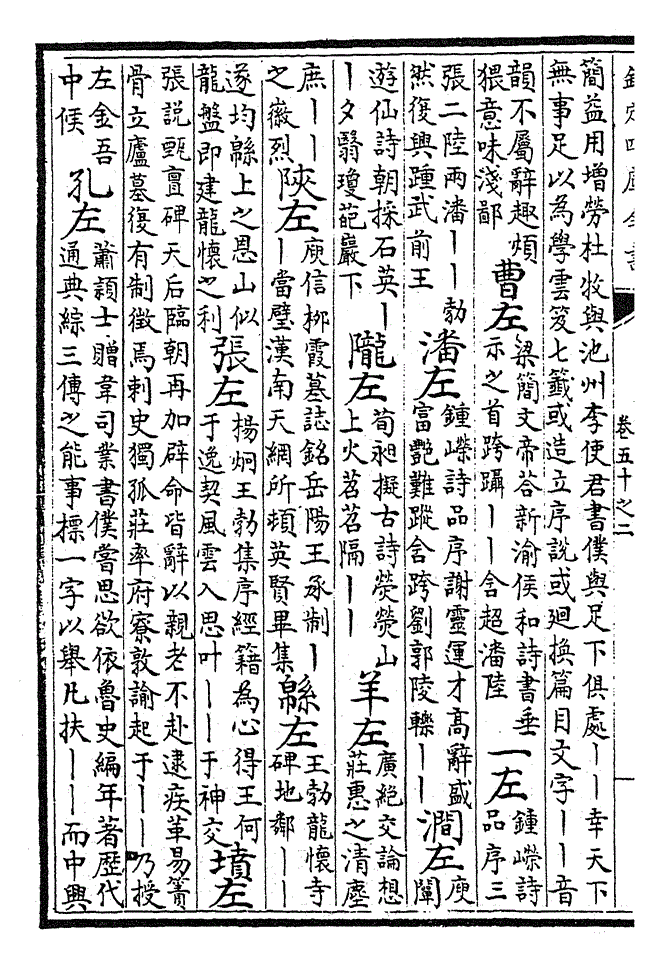 欽定四庫全書
卷五十之二
簡益用增勞杜牧與池州李使君書僕與足下俱處丨丨幸天下
無事足以為學雲笈七籤或造立序說或廻換篇目文字丨丨音
韻不屬辭趣煩
猥意味淺鄙
曹左
梁簡文帝荅新渝侯和詩書垂
示之首跨躡丨丨含超潘陸
一左
鍾嶸詩
品序三
張二陸兩潘丨丨勃
然復興踵武前王
潘左
鍾嶸詩品序謝靈運才高辭盛
富艷難蹤含跨劉郭陵轢丨丨
澗左
庾
闡
遊仙詩朝採石英丨
丨夕翳瓊葩巖下
隴左
荀昶擬古詩熒熒山
上火苕苕隔丨丨
羊左
廣絶交論想
莊惠之清塵
庶丨丨
之徽烈
陝左
庾信柳霞墓誌銘岳陽王承制丨
丨當璧漢南天網所頓英賢畢集
緜左
王勃龍懷寺
碑地鄰丨丨
遂均緜上之恩山似
龍盤即建龍懷之利
張左
楊炯王勃集序經籍為心得王何
于逸契風雲入思叶丨丨于神交
墳左
張說甄亶碑天后臨朝再加辟命皆辭以親老不赴逮疾革易簀
骨立廬墓復有制徵焉刺史獨孤莊率府寮敦諭起于丨丨乃授
左金吾
中候
孔左
蕭頴士贈韋司業書僕嘗思欲依魯史編年著歴代
通典綜三傳之能事標一字以舉凡扶丨丨而中興